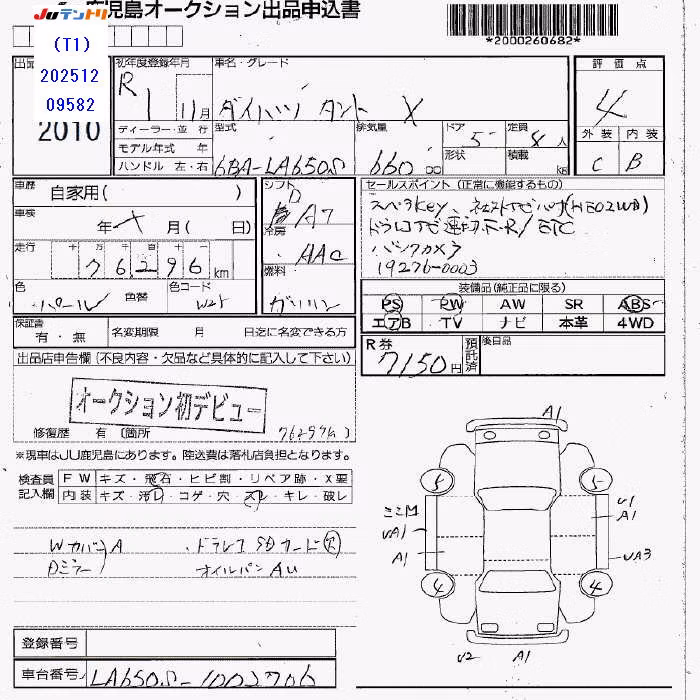 JUテントリ 鹿児島オークション出品申込書
(T1)
202512
09582
2010
*2000260682*
初年度登録年月 車名・グレード 評価点
R 1 11月 ダイハツ タント X 4
ディーラー・並行 型式 排気量 ドア 5 定員 4人 外装 内装
モデル年式 年 形状 積載 kg C B
ハンドル 左・右 6BA-LA650S 660 cc
車歴 自家用( ) シフト セールスポイント (正常に機能するもの)
D
車検 年 月( 日) A7
冷房 AAC ETC
走行 十 万 千 百 十 一 バックカメラ
76296km 19276-0003
燃料 ガソリン
色 パール 色替 色コード W25
装備品(純正品に限る)
PS PW AW SR ABS
エアB TV ナビ 本革 4WD
保証書 有・無 名変期限 月 日迄に名変できる方
R券 7150円 預託済 後日品
出品店申告欄(不良内容・欠品など具体的に記入して下さい)
オークション初デビュー
修復歴 有 (箇所 )
※現車はJU鹿児島にあります。陸送費は落札店負担となります。
検査員記入欄 FW キズ・飛石・ヒビ割・リペア跡・X要
内装 キズ・汚レ・コゲ・穴・スレ・キレ・破レ
WカバーA ドラレコSDカード欠
Dミラー オイルパンAU
A1
5 5
ミミ凹 U1
UA1 A1
A1 UA3
4 4
U2 A1
登録番号
車台番号 LA650S-1002706